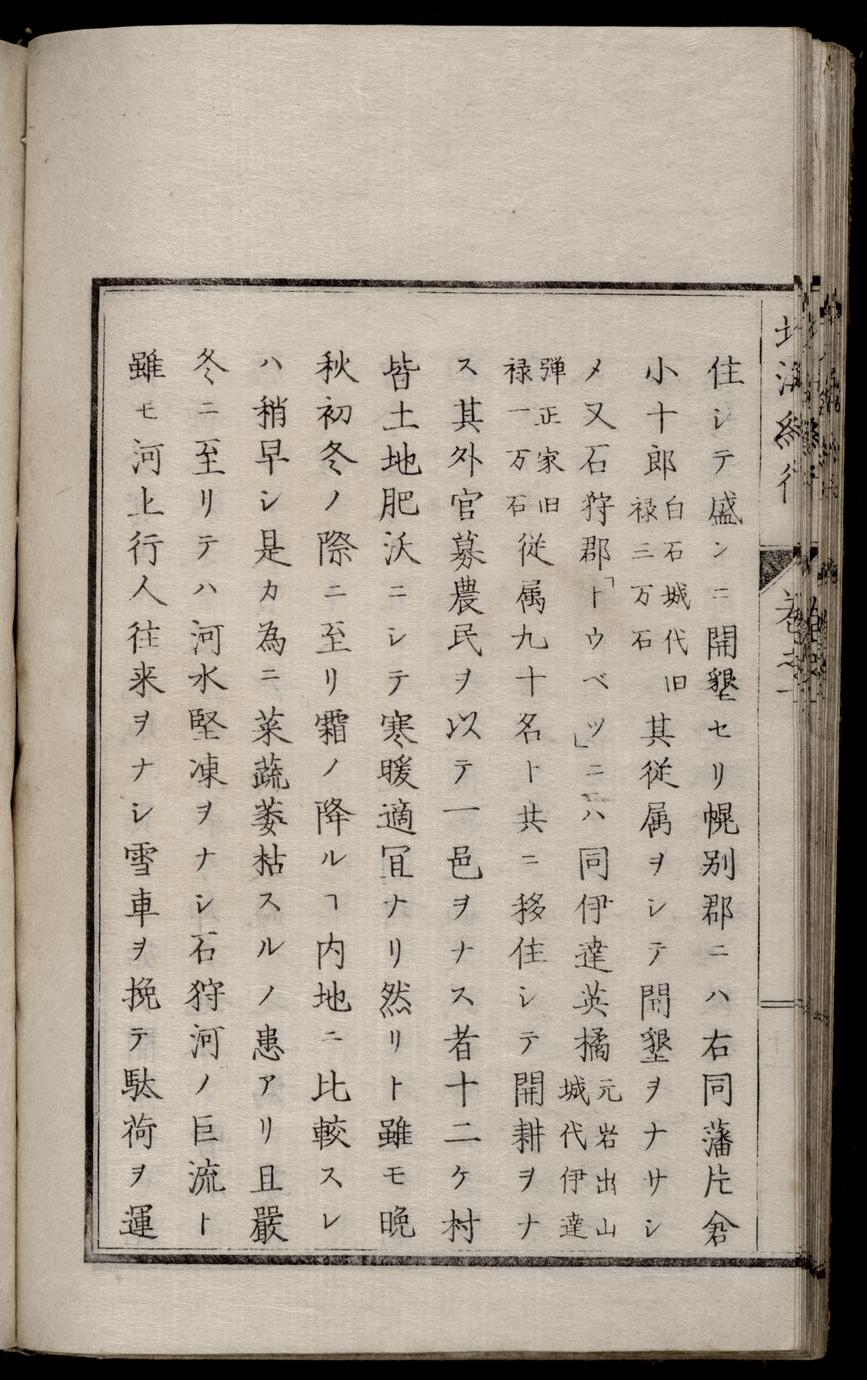 住シテ盛ンニ開墾セリ幌別郡ニハ右同藩片倉
小十郎白石城代旧禄三万石其従属ヲシテ開墾ヲナサシ
メ又石狩郡「トウベツ」ニハ同伊達英橘元岩出山城代伊達
弾正家旧禄一万石従属九十名ト共ニ移住シテ開耕ヲナ
ス其外官募農民ヲ以テ一邑ヲナス者十二ケ村
皆土地肥沃ニシテ寒暖適冝ナリ然リト雖モ晩
秋初冬ノ際ニ至リ霜ノ降ルヿ内地ニ比較スレ
ハ稍早シ是カ為ニ菜蔬萎枯スルノ患アリ且嚴
冬ニ至リテハ河水堅凍ヲナシ石狩河ノ巨流ト
雖モ河上行人往来ヲナシ雪車ヲ挽テ駄荷ヲ運